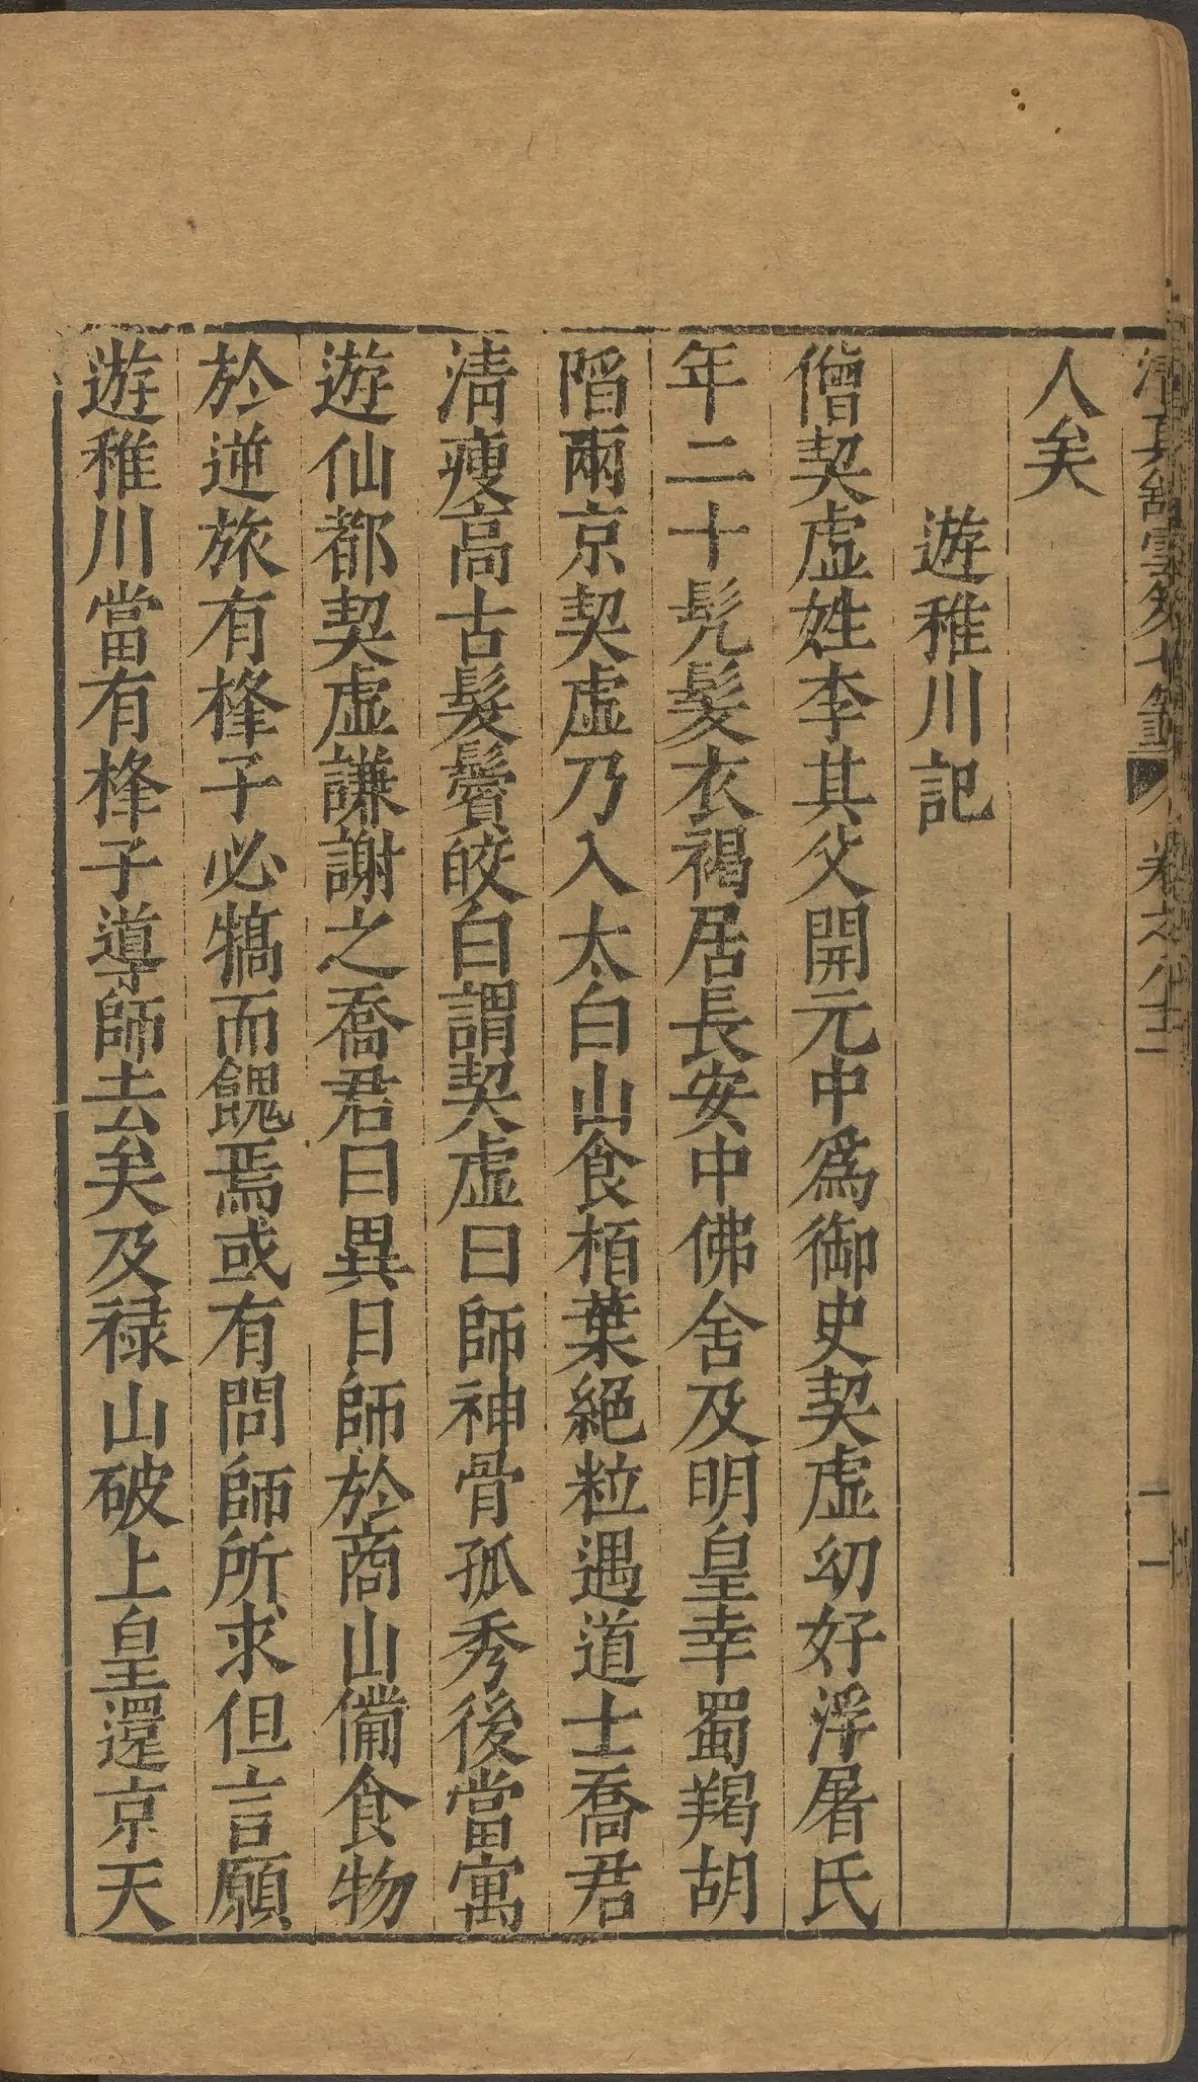 清真舘雲笈七籤 卷之
人矣
遊稚川記
僧契虛姓李其父開元中爲御史契虛幼好浮屠氏
年二十髠髮衣褐居長安中佛舍及明皇幸蜀羯胡
陷兩京契虛乃入太白山食栢葉絕粒遇道士喬君
清瘦高古髮鬢皎白謂契虛曰師神骨孤秀後當寓
遊仙都契虛謙謝之喬君曰異日師於商山備食物
於逆旅有桻子必犒而餽焉或有問師所求但言願
遊稚川當有桻子導師去矣及祿山破上皇還京天